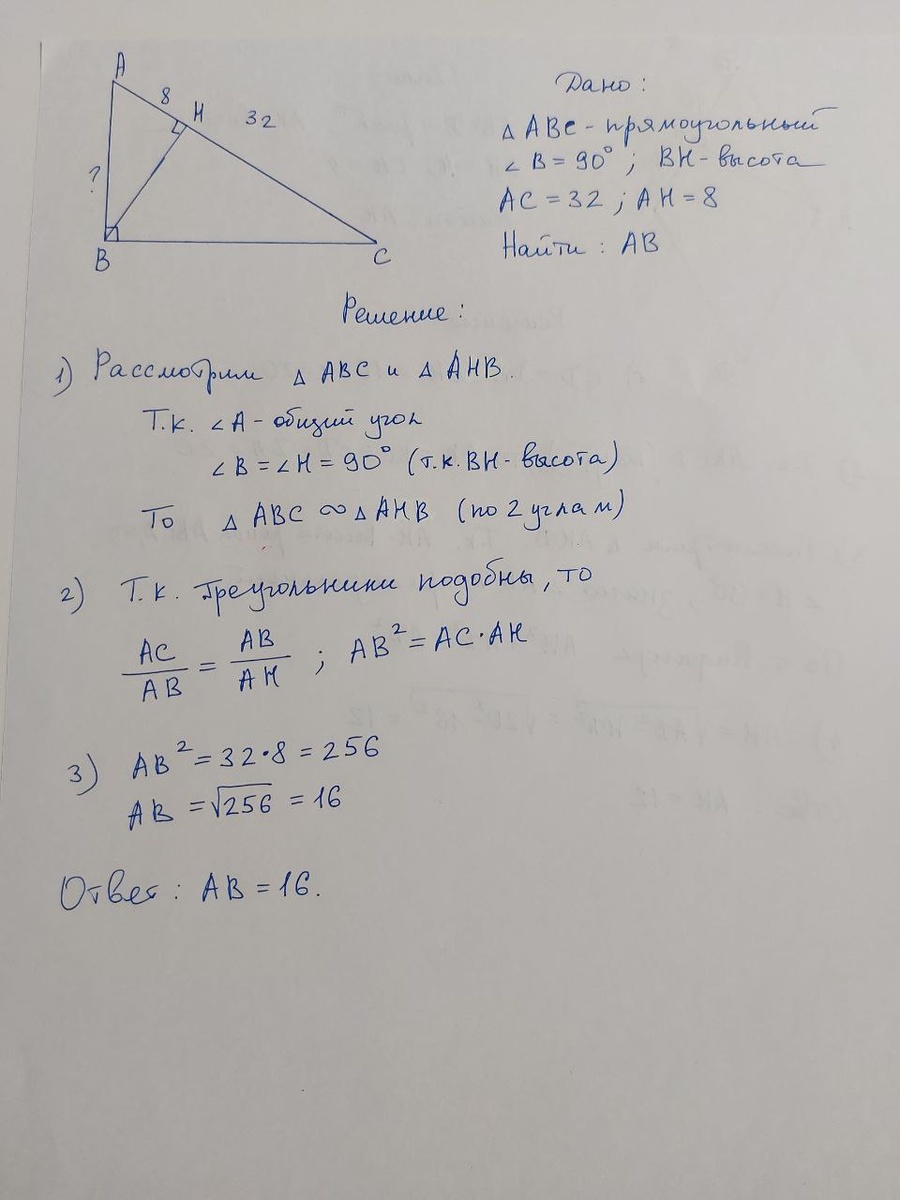 A
8
H
32
?
B
C
Дано:
△ ABC - прямоугольный
∠B = 90°; BH - высота
AC = 32; AH = 8
Найти: AB
Решение:
1) Рассмотрим △ ABC и △ AHB.
Т.к. ∠A - общий угол
∠B = ∠H = 90° (т.к. BH - высота)
То △ ABC ∞ △ AHB (по 2 углам)
2) Т.к. треугольники подобны, то
AC/AB = AB/AH; AB² = AC·AH
3) AB² = 32·8 = 256
AB = √256 = 16
Ответ: AB = 16.